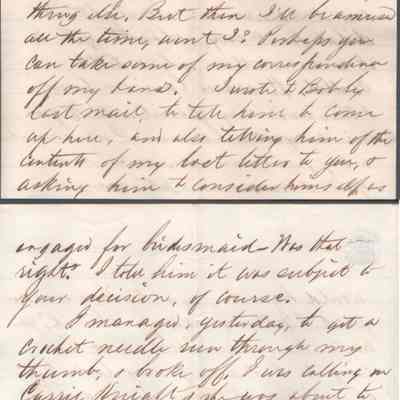 thing else. But then I'll be amused
all the time, wont I? Perhaps you
can take some of my correspondence
off my hand. I wrote to Bobby
last mail, to tell him to come
up here, and also telling him of the
contents of my last letter to you, &
asking him to consider himself as
engaged for bridesmaid - Was that
right? I told him it was subject to
your decision, of course.
I managed, yesterday, to get a
crochet needle run through my
thumb, & broke off, I was calling on
Carrie Knight & she was about to